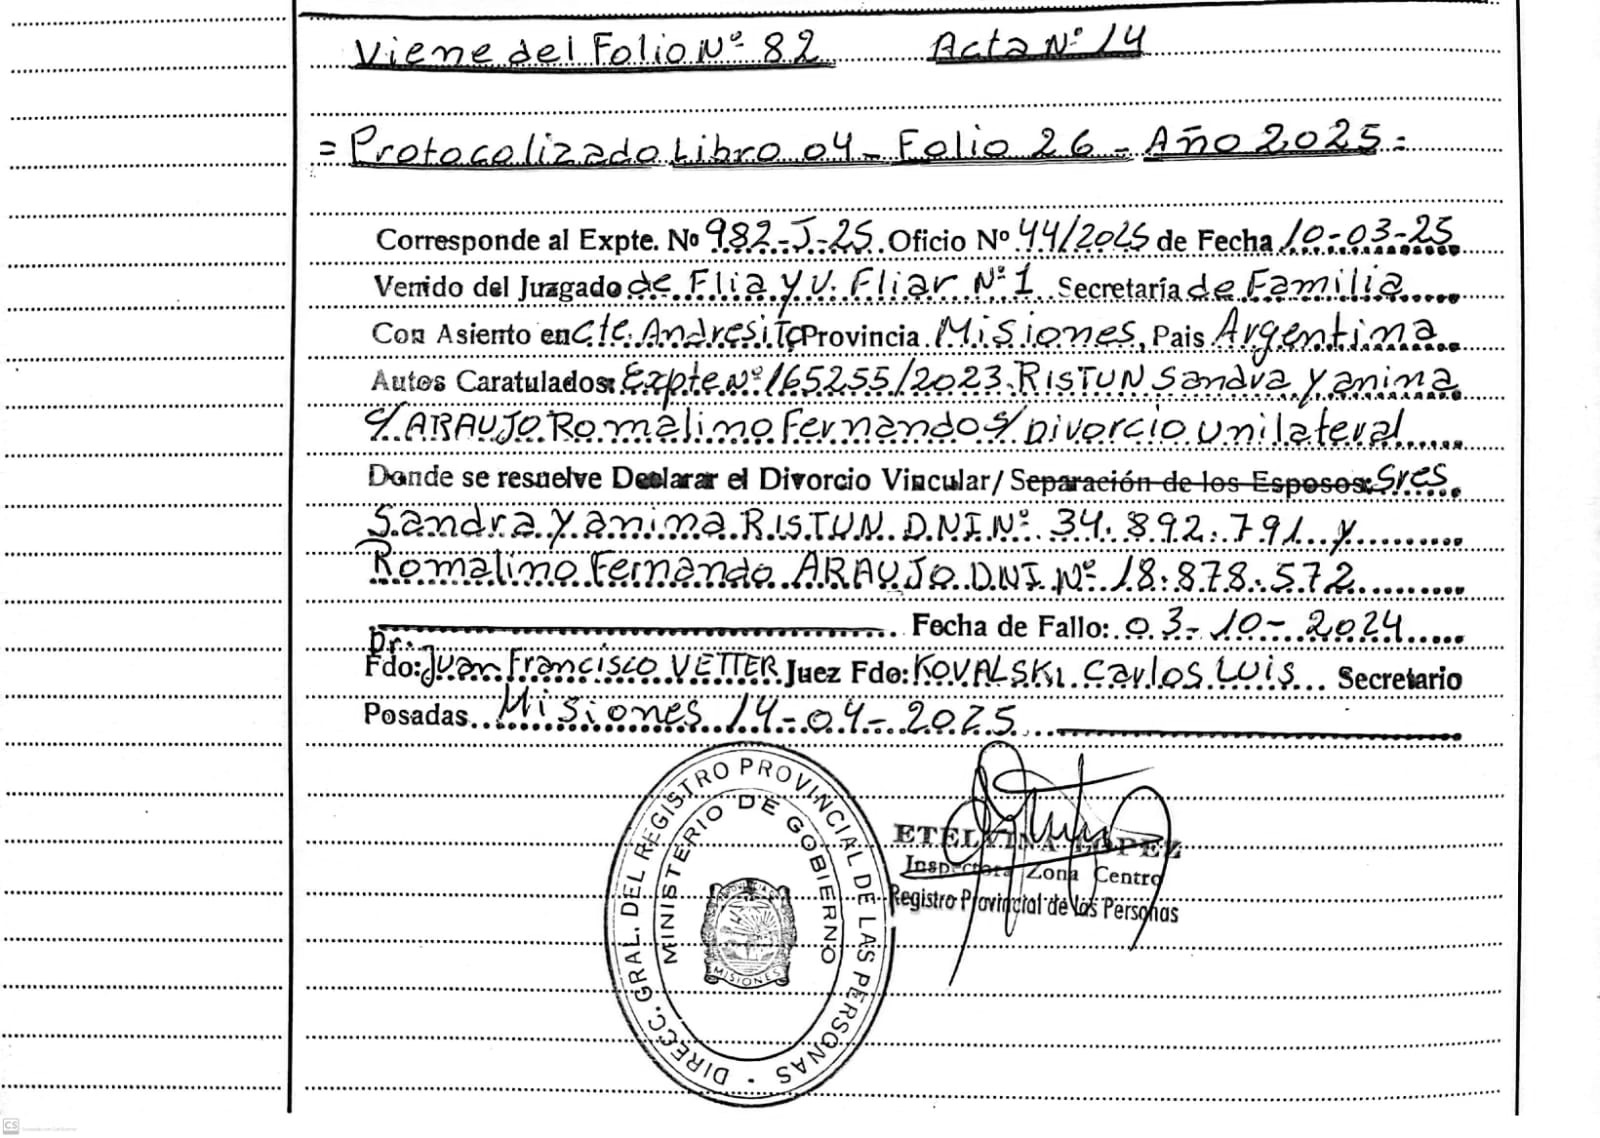 Viene del Folio Nº 82 Acta Nº 14
= Protocolizado Libro 04 - Folio 26 - Año 2025 =
Corresponde al Expte. Nº 982-J-25 Oficio Nº 44/2025 de Fecha 10-03-25
Venido del Juzgado de Flia y V. Fliar Nº 1 Secretaría de Familia
Con Asiento en Cte. Andresito Provincia Misiones, Pais Argentina
Autos Caratulados: Expte Nº 165255/2023 RISTUN Sandra Yanina
c/ ARAUJO Romalino Fernando s/ Divorcio Unilateral
Donde se resuelve Declarar el Divorcio Vincular/ Separación de los Esposos: Sres
Sandra Yanina RISTUN DNI Nº 34.892.791 y
Romalino Fernando ARAUJO DNI Nº 18.878.572
Fecha de Fallo: 03-10-2024
Dr.
Fdo: Juan Francisco VETTER Juez Fdo: KOVALSKI Carlos Luis Secretario
Posadas Misiones 14-04-2025
DIRECC. GRAL. DEL REGISTRO PROVINCIAL DE LAS PERSONAS
MINISTERIO DE GOBIERNO
PROVINCIA DE
MISIONES
ETELVINA LOPEZ
Inspectora Zona Centro
Registro Provincial de las Personas
CS